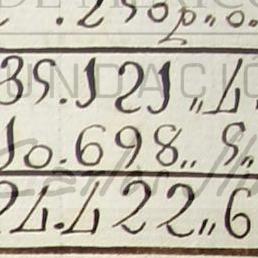 .250p,,o.
35.121,,4.
10.698,,5.
24.422,,6